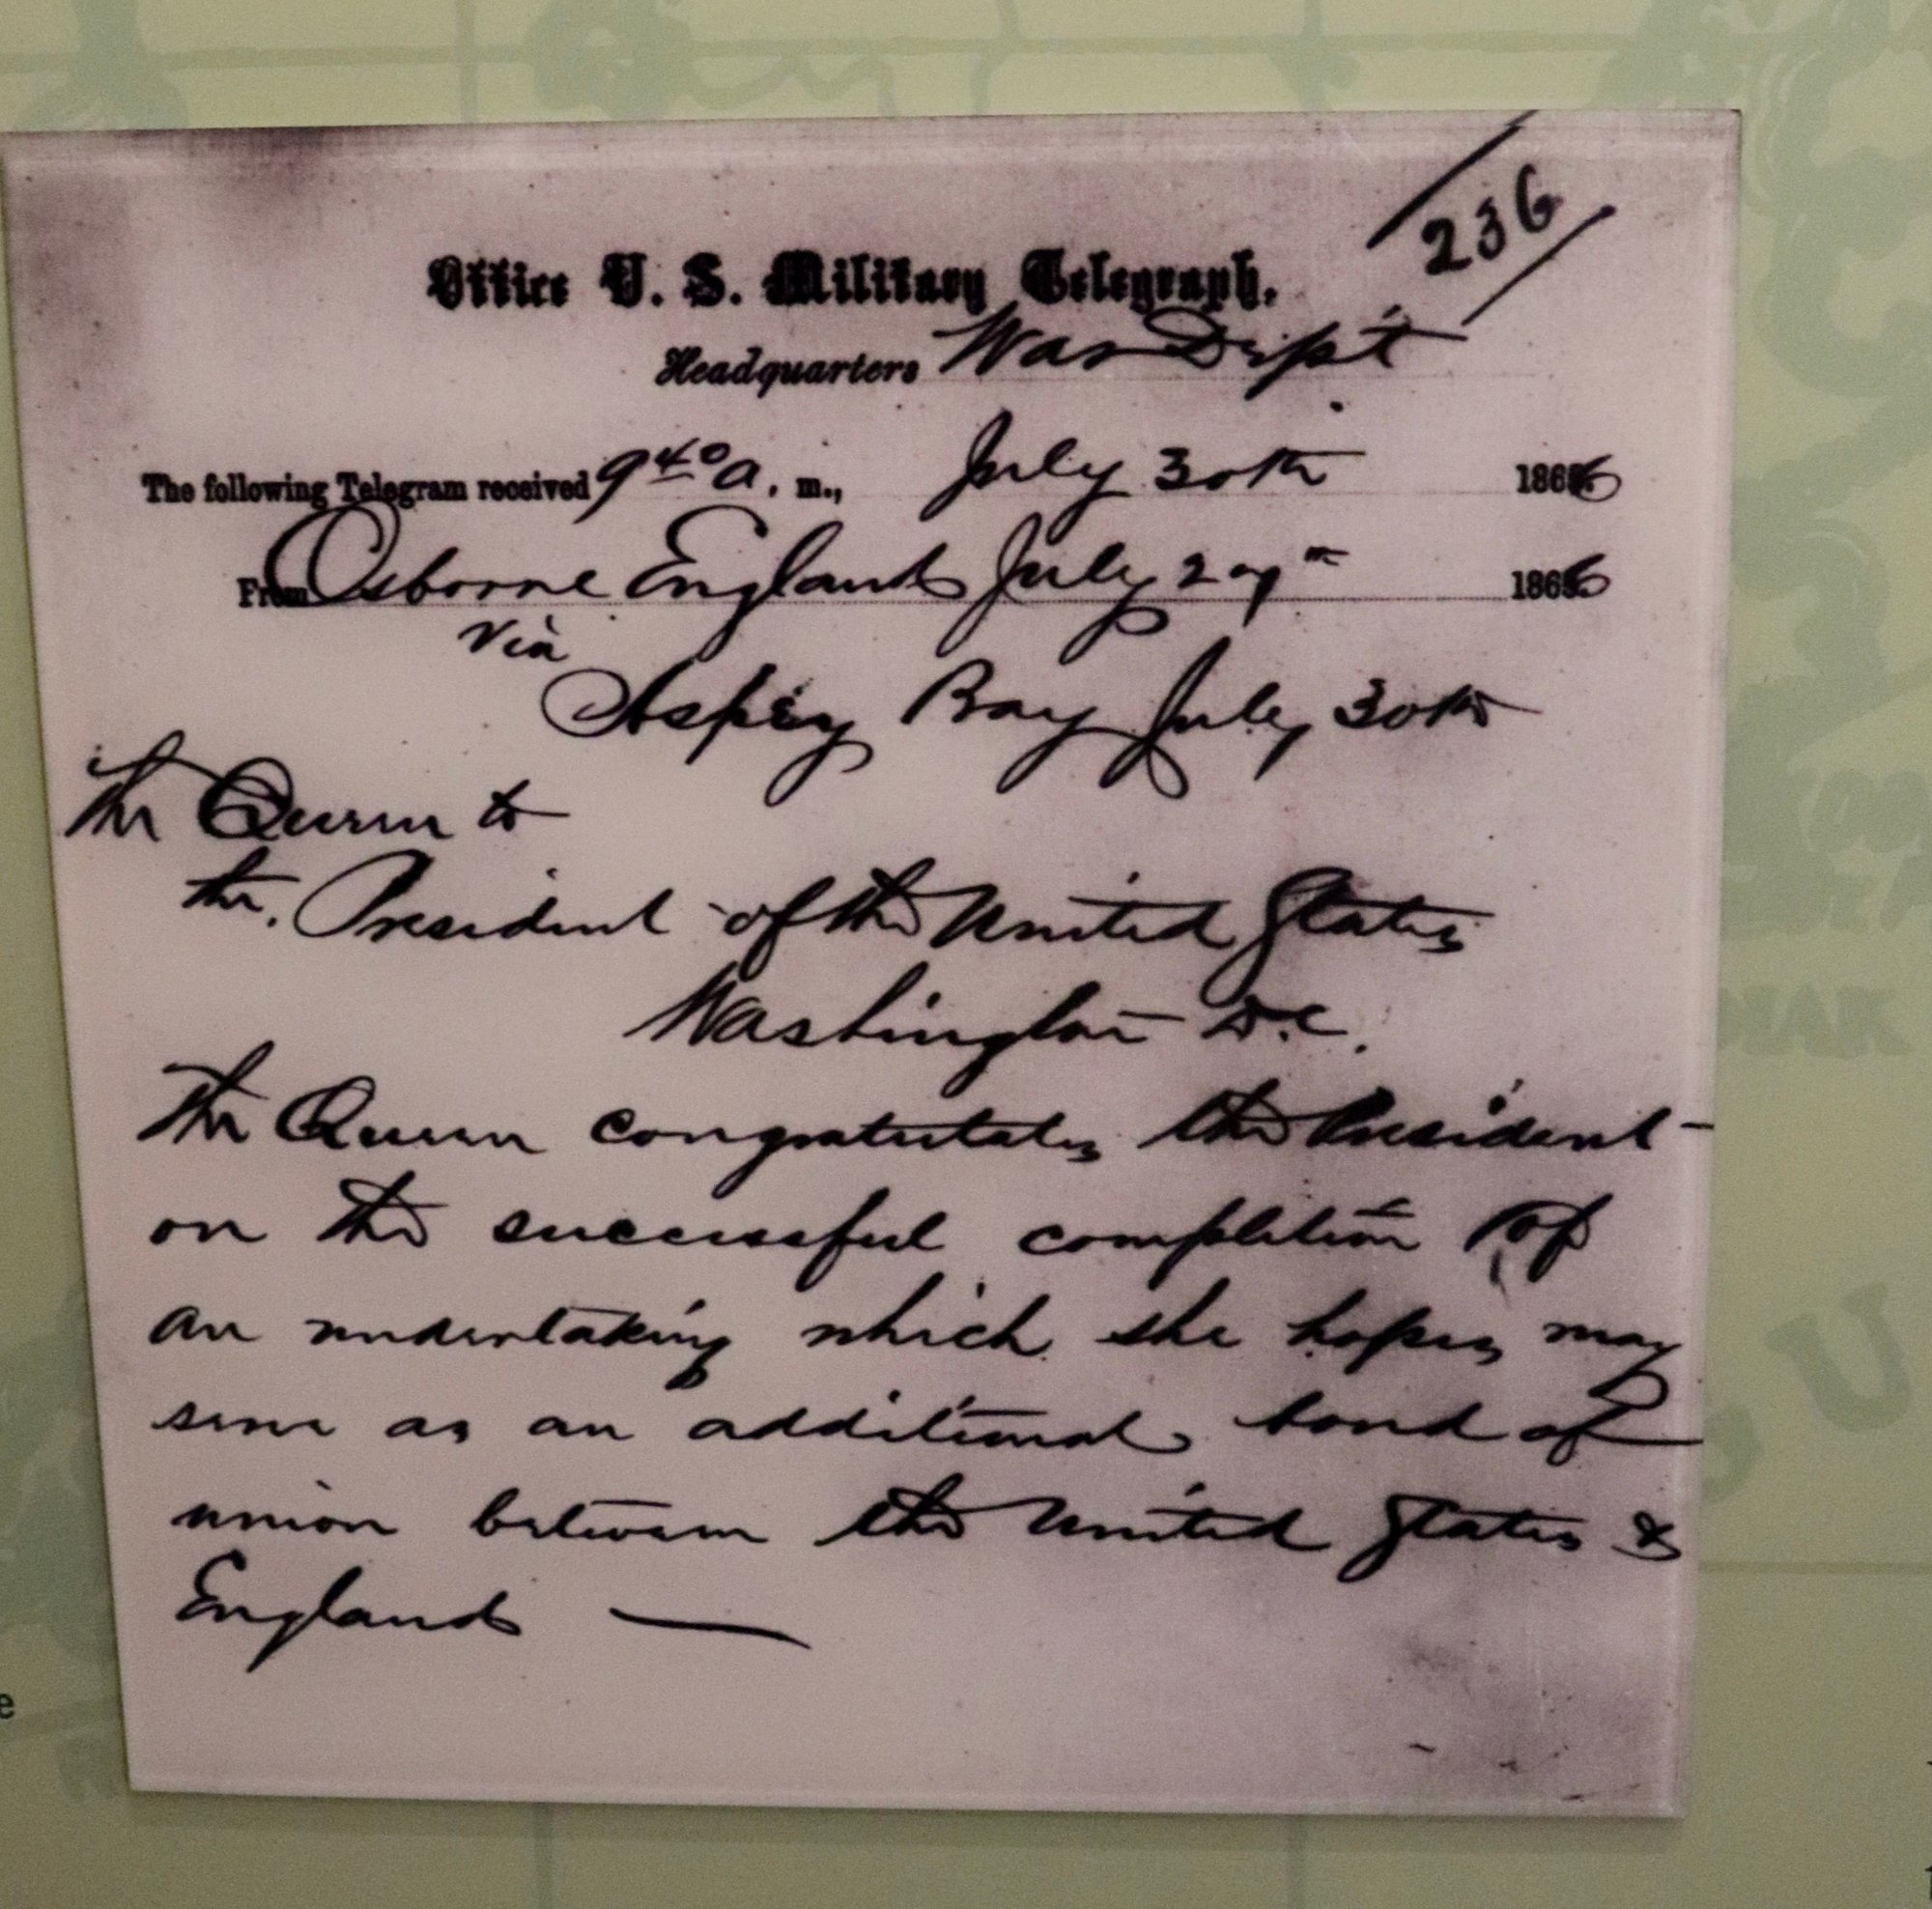 236
Office U. S. Military Telegraph.
Headquarters War Dep't
The following Telegram received 9 40 a. m., July 30th 1866
From Osborne England July 27th 1866
Via
Aspey Bay July 30th
The Queen to
the President of the United States
Washington D.C.
The Queen congratulates the President
on the successful completion of
an undertaking which she hopes may
serve as an additional bond of
union between the United States &
England —
e
NAK
U